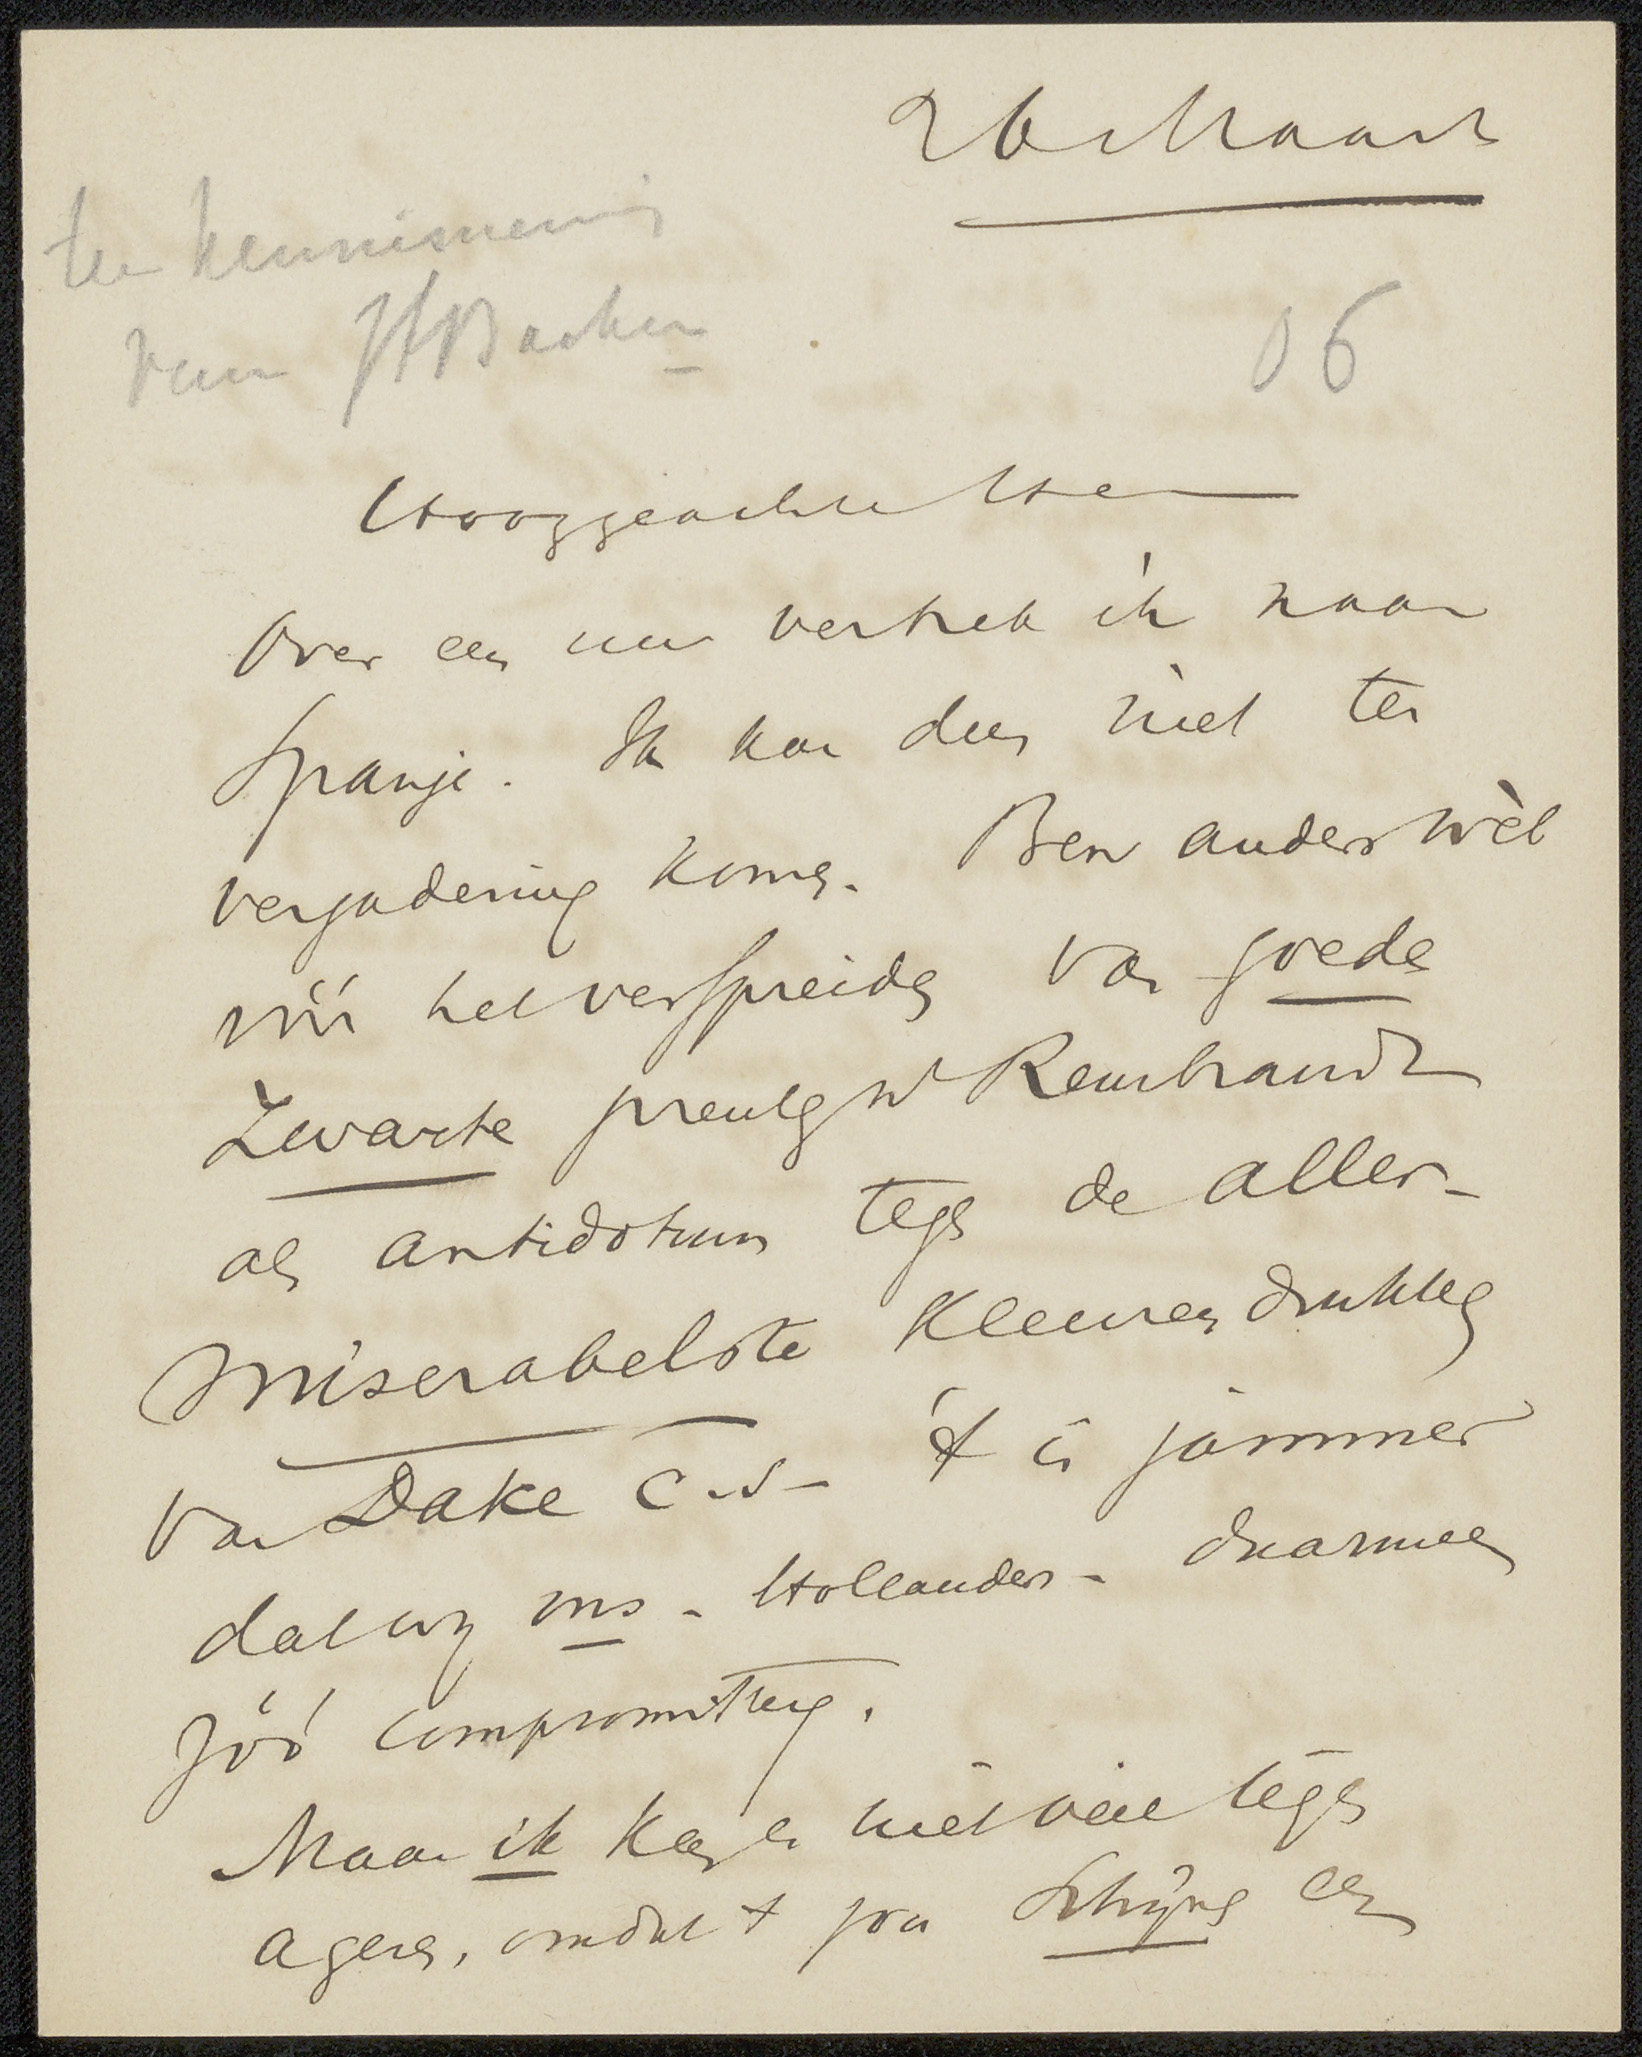 26 Maart
ter kennisneming
van
06
Hooggeachte Heer
Over een uur vertrek ik naar
Spanje. Ik kan dus niet ter
vergadering komen. Ben anders wèl
vóór het verspreiden van goede
zwarte prenten n/ Rembrandt
als antidotum tegen de aller-
miserabelste kleurendrukken
van Dake c.s. - 't is jammer
dat wij ons - Hollanders - daarmee
zóó compromitteeren.
Maar ik kan er niet veel tegen
ageren, omdat 't zou schijnen een